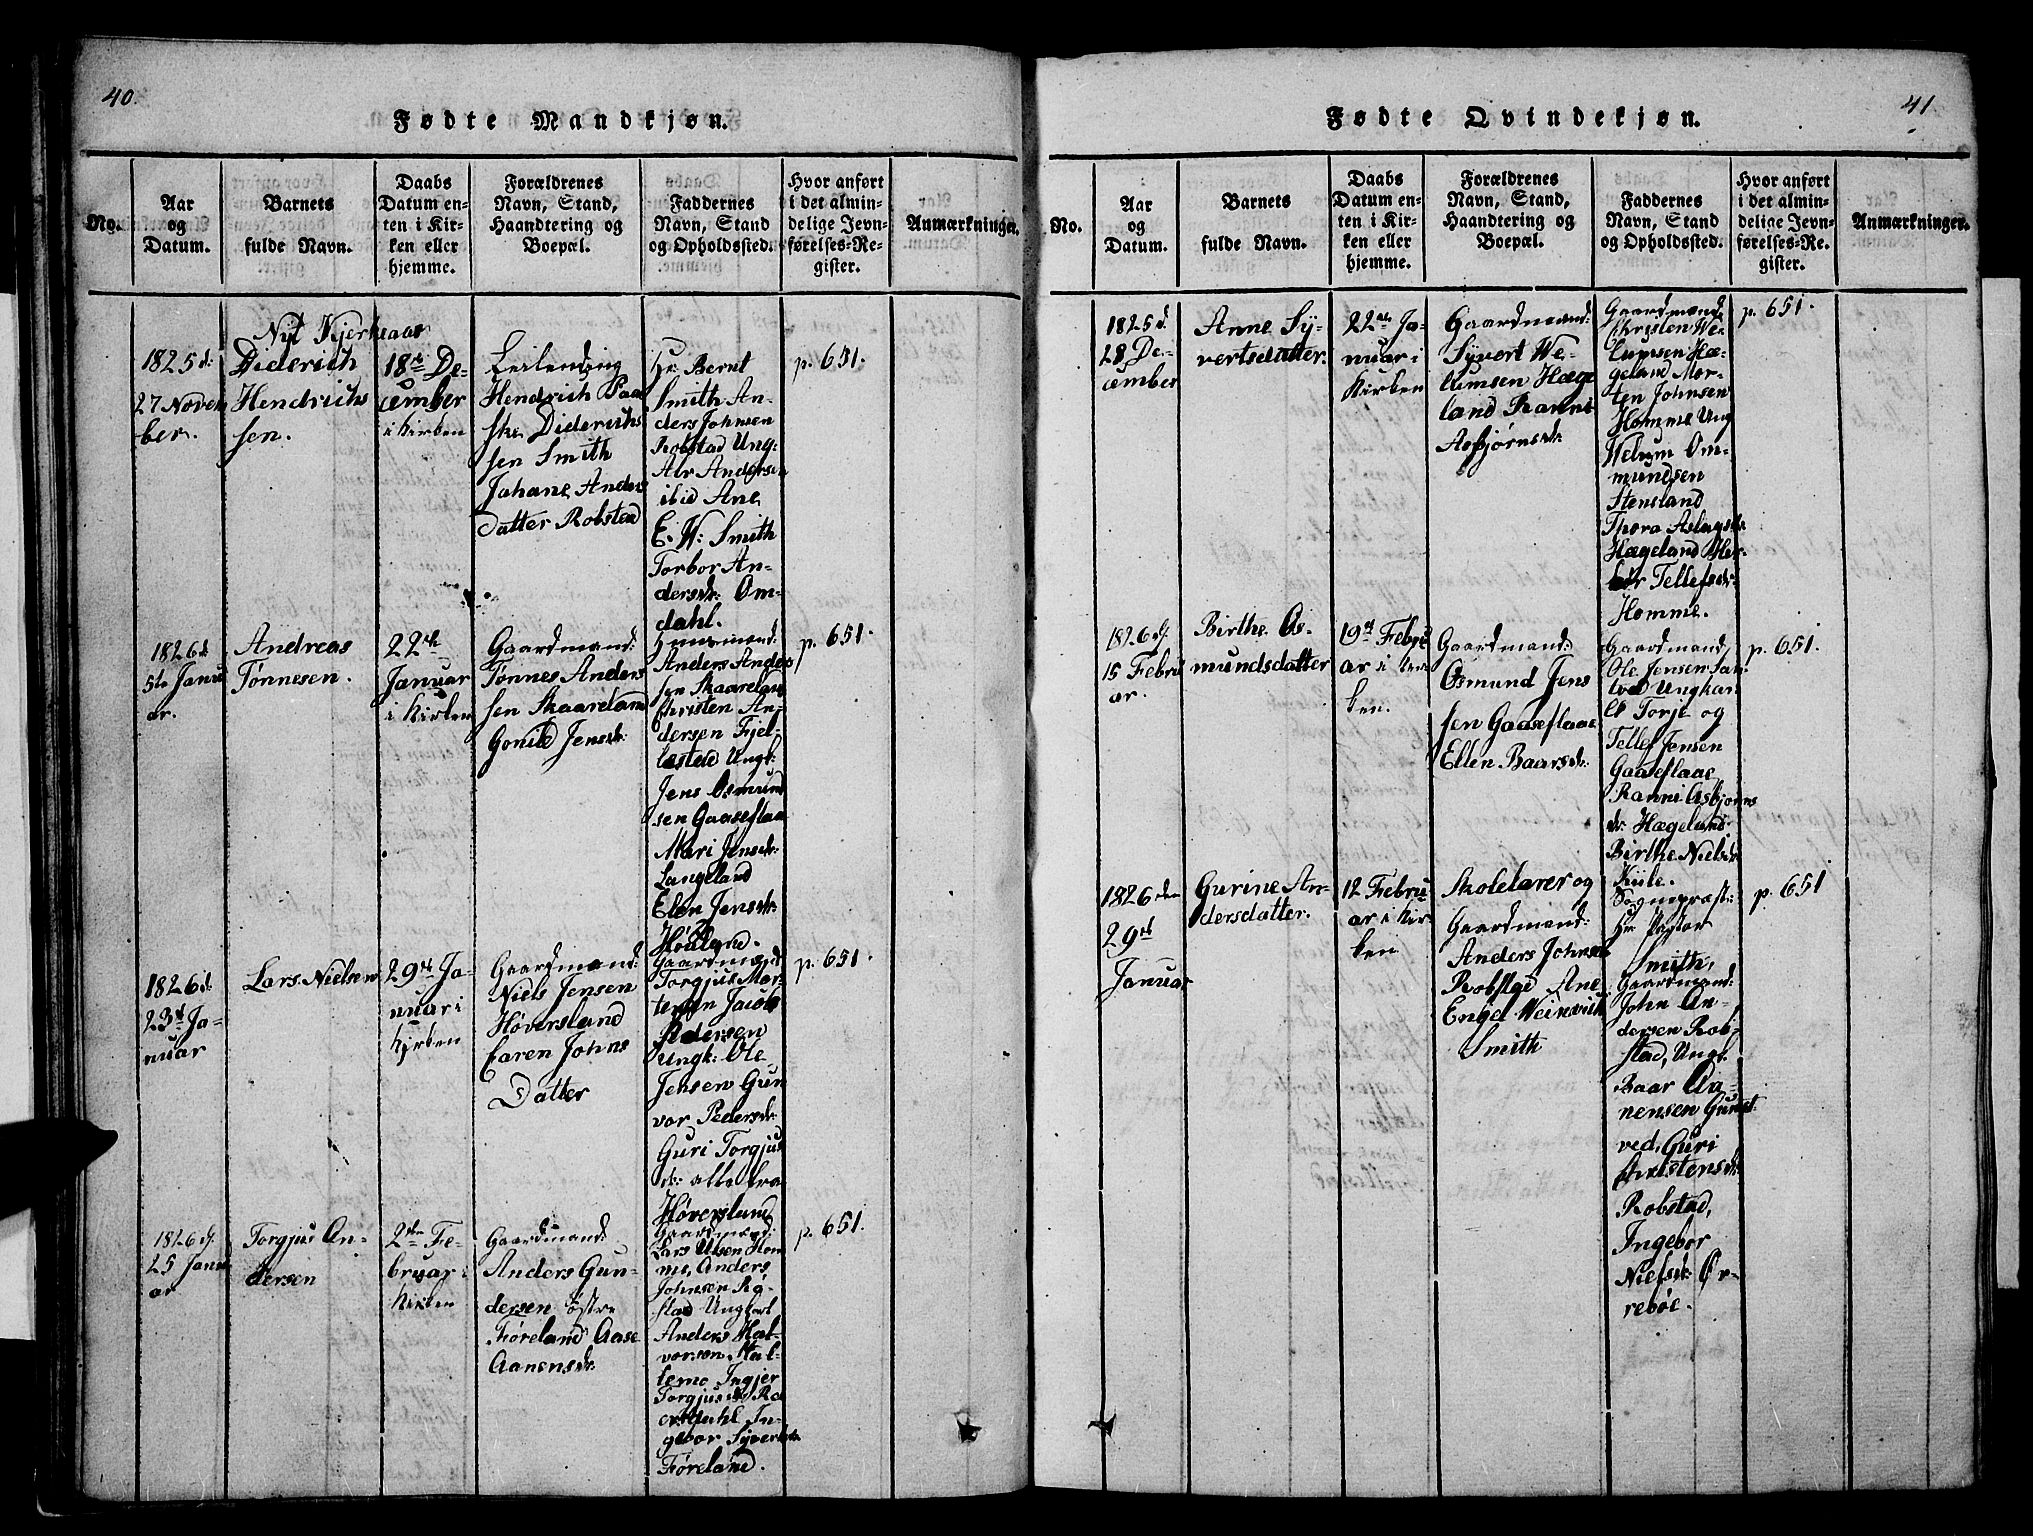 40.
Fødte Mandkjøn.
No.
Aar
og
Datum.
Barnets
fulde Navn.
Daabs
Datum en-
ten i Kir-
ken eller
hjemme.
Forældrenes
Navn, Stand,
Haandtering og
Boepæl.
Faddernes
Navn, Stand
og Opholdssted.
Hvor anført
i det almin-
delige Jevn-
førelses-Re-
gister.
Anmærkninger.
Nyt Kjerkeaar
1825 d:
27 Novem
ber.
Diderich
Hendrichs
sen.
18de De-
cember
i Kirken
Leilending
Hendrich Paa
ske Diderichs
sen Smith
Johane Anders
Datter Robstad
Hr: Bernt
Smith An-
ders Johnsen
Robstad Ung:
Alv Andersen
ibid Ane
E. W: Smith
Torbor An-
dersdr: Om-
dahl.
p. 651.
1826 d:
5te Janu
ar.
Andreas
Tønnesen.
22de
Januar
i Kirken
Gaardmand:
Tønnes Anders
sen Skaareland
Gonild Jensdr:
Anders Anders
sen Skaareland
Christen An-
dersen Fjel-
lestad Ungk:
Jens Osmund
sen Gaaseflaa
Mari Jensdr:
Langeland
Elen Jensdr:
Høiland.
p. 651.
1826 d.
23de Ja-
nuar
Lars Nielsen
29de Ja-
nuar i
Kirken
Gaardmand:
Niels Jensen
Høversland
Caren Johns
Datter
Gaardmænd
Torgjus Mor-
tensen Jacob
Pedersen
Ungk: Ole
Jensen Gun
vor Pedersdr:
Guri Torgjus
dr: alle fra
Høversland
p. 651.
1826 d.
25 Janu
ar
Torgjus An-
dersen
2den Fe-
bruar i
Kirken
Gaardmand:
Anders Gun-
dersen Østre
Føreland Aase
Aanensdr:
Gaardmænd:
Lars Olsen Hom
me, Anders
Johnsen Rig-
stad Ungkarl
Anders Hal-
vorsen
Ingjer
Torgjusdr:
In-
gebor Syvertsdr:
Føreland.
p. 651.
41.
Fødte Qvindekjøn.
No.
Aar
og
Datum.
Barnets
fulde Navn.
Daabs
Datum en-
ten i Kir-
ken eller
hjemme.
Forældrenes
Navn, Stand,
Haandtering og
Boepæl.
Faddernes
Navn, Stand
og Opholdssted.
Hvor anført
i det almin-
delige Jevn-
førelses-Re-
gister.
Anmærkninger.
1825 d.
28 De-
cember
Anne Sy-
vertsdatter.
22de Ja-
nuar i
Kirken
Gaardmand:
Syvert We-
lumsen Hæge
land Ranni
Asbjørnsdr:
Gaardmænd
Christen We-
lumsen Hæ-
geland Mor-
ten Johnsen
Homme Ung
Welum Om-
mundsen
Stensland
Thora Aslagsdr:
Hægeland
Tellefsdr:
Homme.
p. 651.
1826 d.
15 Febru
ar.
Birthe Os-
mundsdatter
19de Febru
ar i Kir
ken.
Gaardmand:
Osmund Jens
sen Gaaseflaae
Ellen Baarsdr:
Gaardmand
Ole Jensen
Ungkar
le Torje og
Tellef Jensen
Gaaseflaae
Ranni Asbjørns
dr: Hægeland
Birthe Nielsdr
Kiile.
p. 651.
1826 den
29de
Januar
Gurine An-
dersdatter.
12 Febru
ar i Kir-
ken
Skolelærer og
Gaardmand:
Anders Johnsen
Robstad Ane
Engel Weinvich
Smith
Sognepræst:
Hr Pastor
Smith,
Gaardmand:
John An-
dersen Rob-
stad, Ungk.
Baar Aa-
nensen Gumst
ved, Guri
Christensdr
Robstad,
Ingebor
Nielsdr: Ør-
rebøe.
p. 651